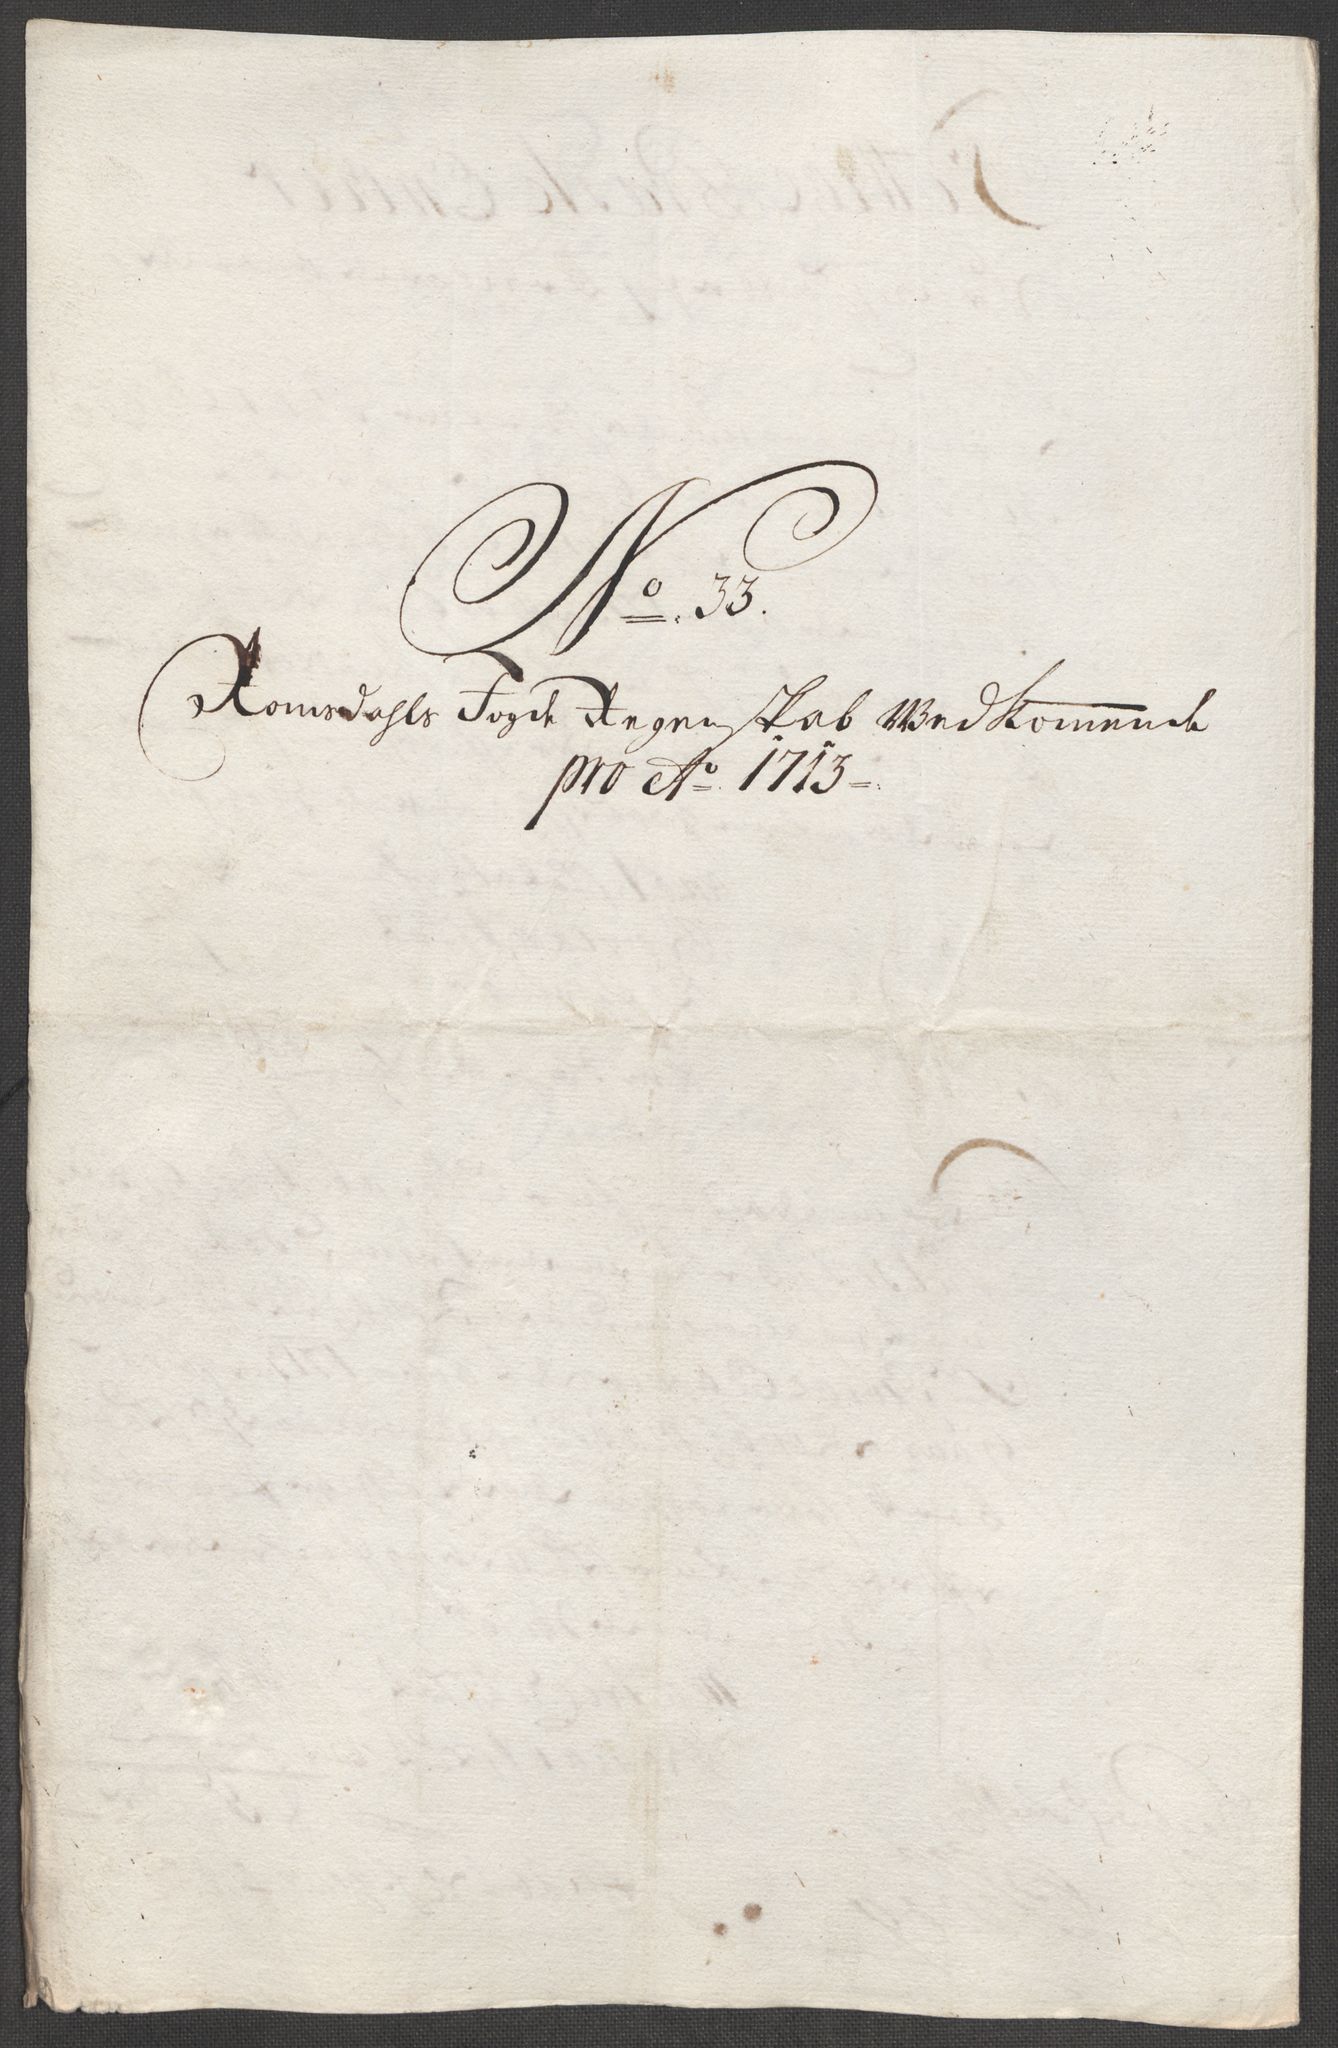 No. 33.
Romsdahls Fogde Regenskab Wedkomende
pro Ao. 1713